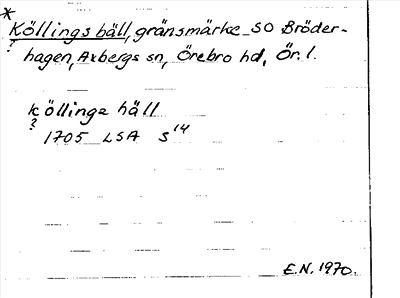 *
Köllings häll, gränsmärke SO Bröder-
? hagen, Axbergs sn, Örebro hd, Ör. l.
köllinge häll
? 1705 LSA S 14
E.N. 1970.